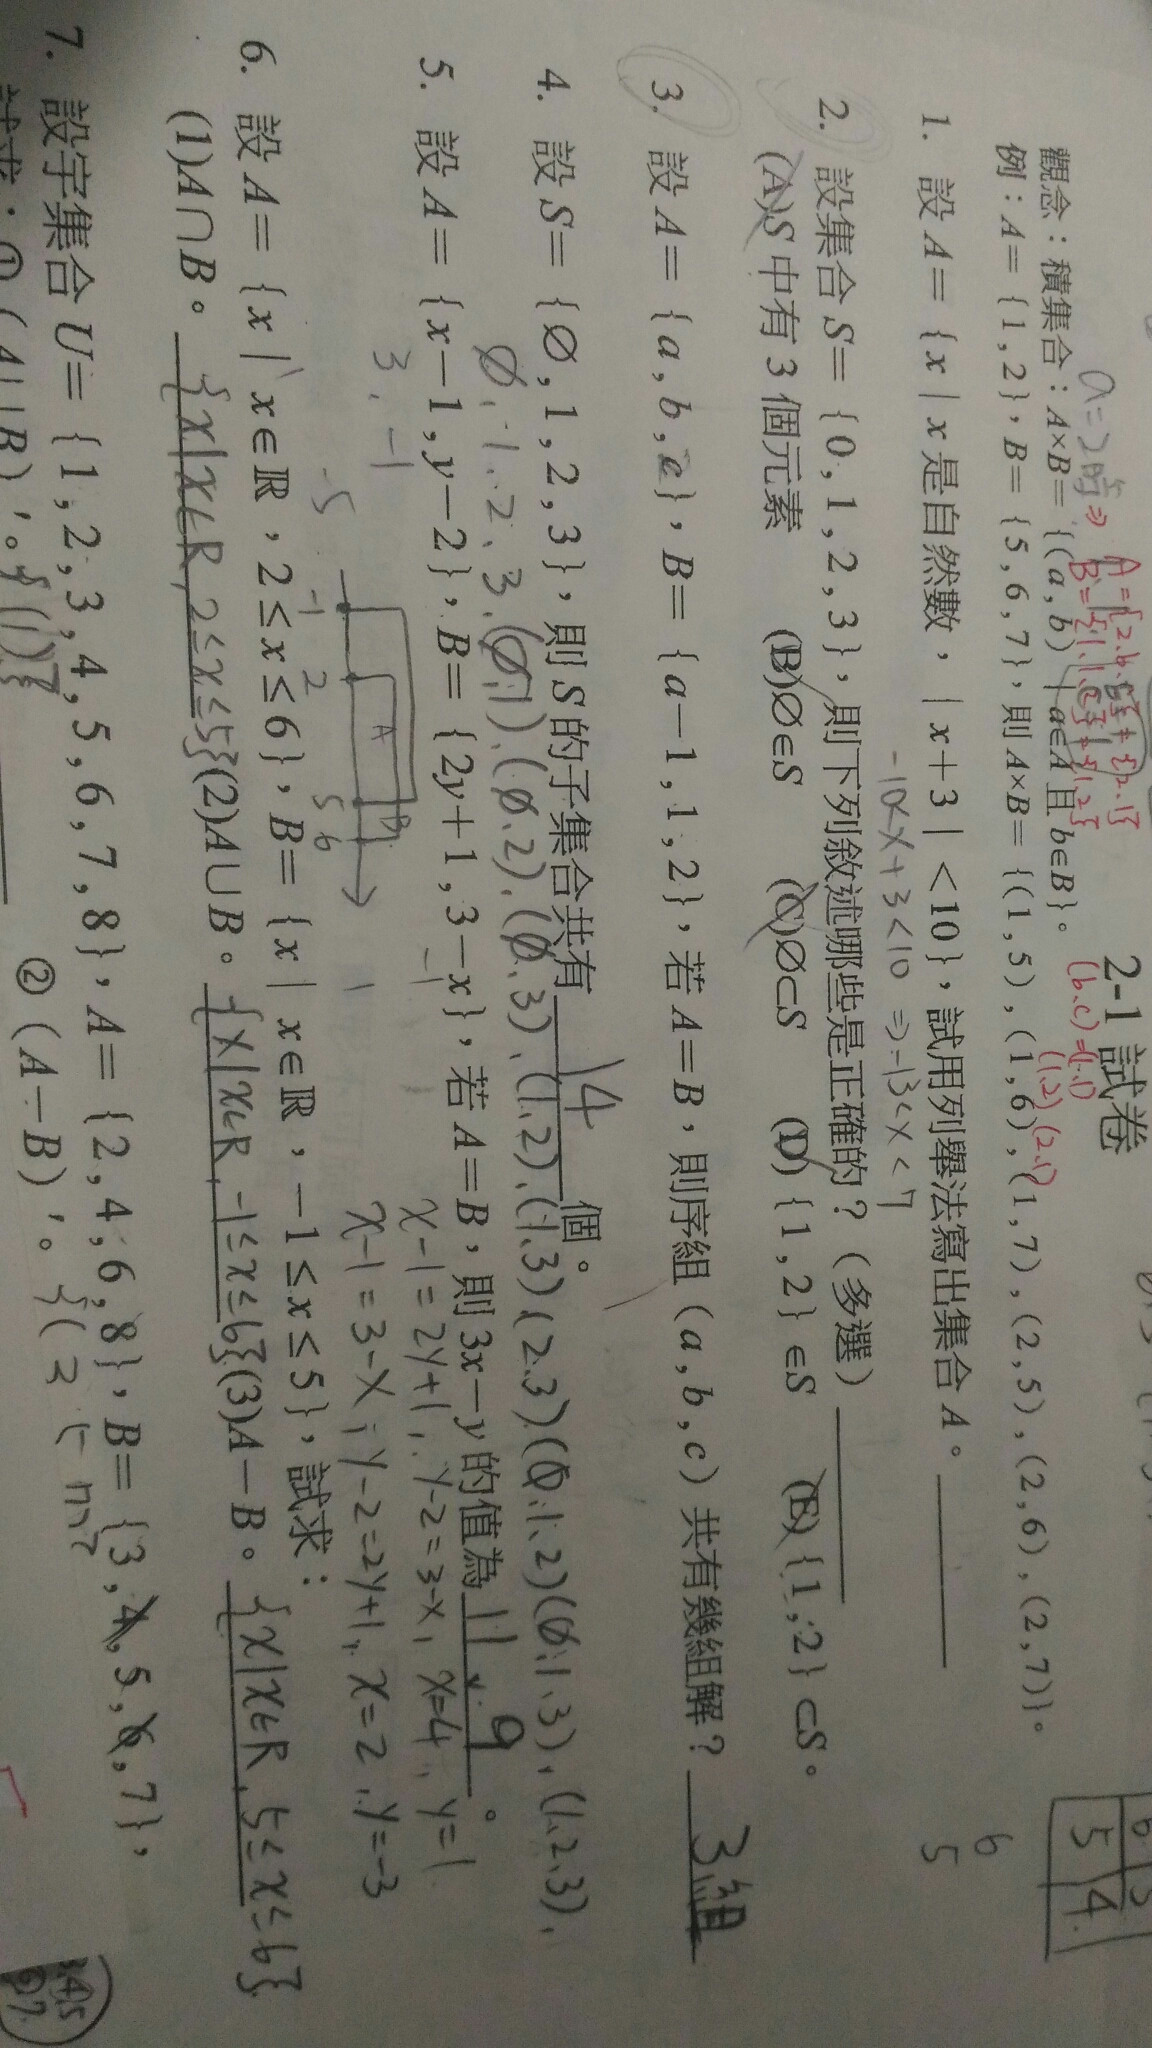 2-1 試卷
觀念：積集合：A×B＝{(a,b)｜a∈A 且 b∈B}。
例：A＝{1,2}，B＝{5,6,7}，則 A×B＝{(1,5),(1,6),(1,7),(2,5),(2,6),(2,7)}。
1. 設 A＝{x｜x 是自然數，｜x＋3｜＜10}，試用列舉法寫出集合 A。
-10<x+3<10 ⇒ -13<x<7
2. 設集合 S＝{0,1,2,3}，則下列敘述哪些是正確的？（多選）
(A)S 中有 3 個元素 (B)∅∈S (C)∅⊂S (D){1,2}∈S (E){1,2}⊂S。
3. 設 A＝{a,b,c}，B＝{a－1,1,2}，若 A＝B，則序組（a,b,c）共有幾組解？ 3組
4. 設 S＝{∅,1,2,3}，則 S 的子集合共有 14 個。
∅、1、2、3、(∅,1)、(∅,2)、(∅,3)、(1,2)、(1,3)(2,3)(∅,1,2)(∅,1,3)、(1,2,3)、
5. 設 A＝{x－1,y－2}，B＝{2y＋1,3－x}，若 A＝B，則 3x－y 的值為 11、9。
3、-1
x-1=2y+1, y-2=3-x, x=4, y=1
x-1=3-x, y-2=2y+1, x=2, y=-3
6. 設 A＝{x｜x∈ℝ，2≤x≤6}，B＝{x｜x∈ℝ，－1≤x≤5}，試求：
-5 -1 2 5 6
A B
(1)A∩B。{x|x∈R, 2≤x≤5} (2)A∪B。{x|x∈R, -1≤x≤6} (3)A－B。{x|x∈R, 5≤x≤6}
7. 設宇集合 U＝{1,2,3,4,5,6,7,8}，A＝{2,4,6,8}，B＝{3,4,5,6,7}，
試求：①（A∪B）'。 ②（A－B）'。